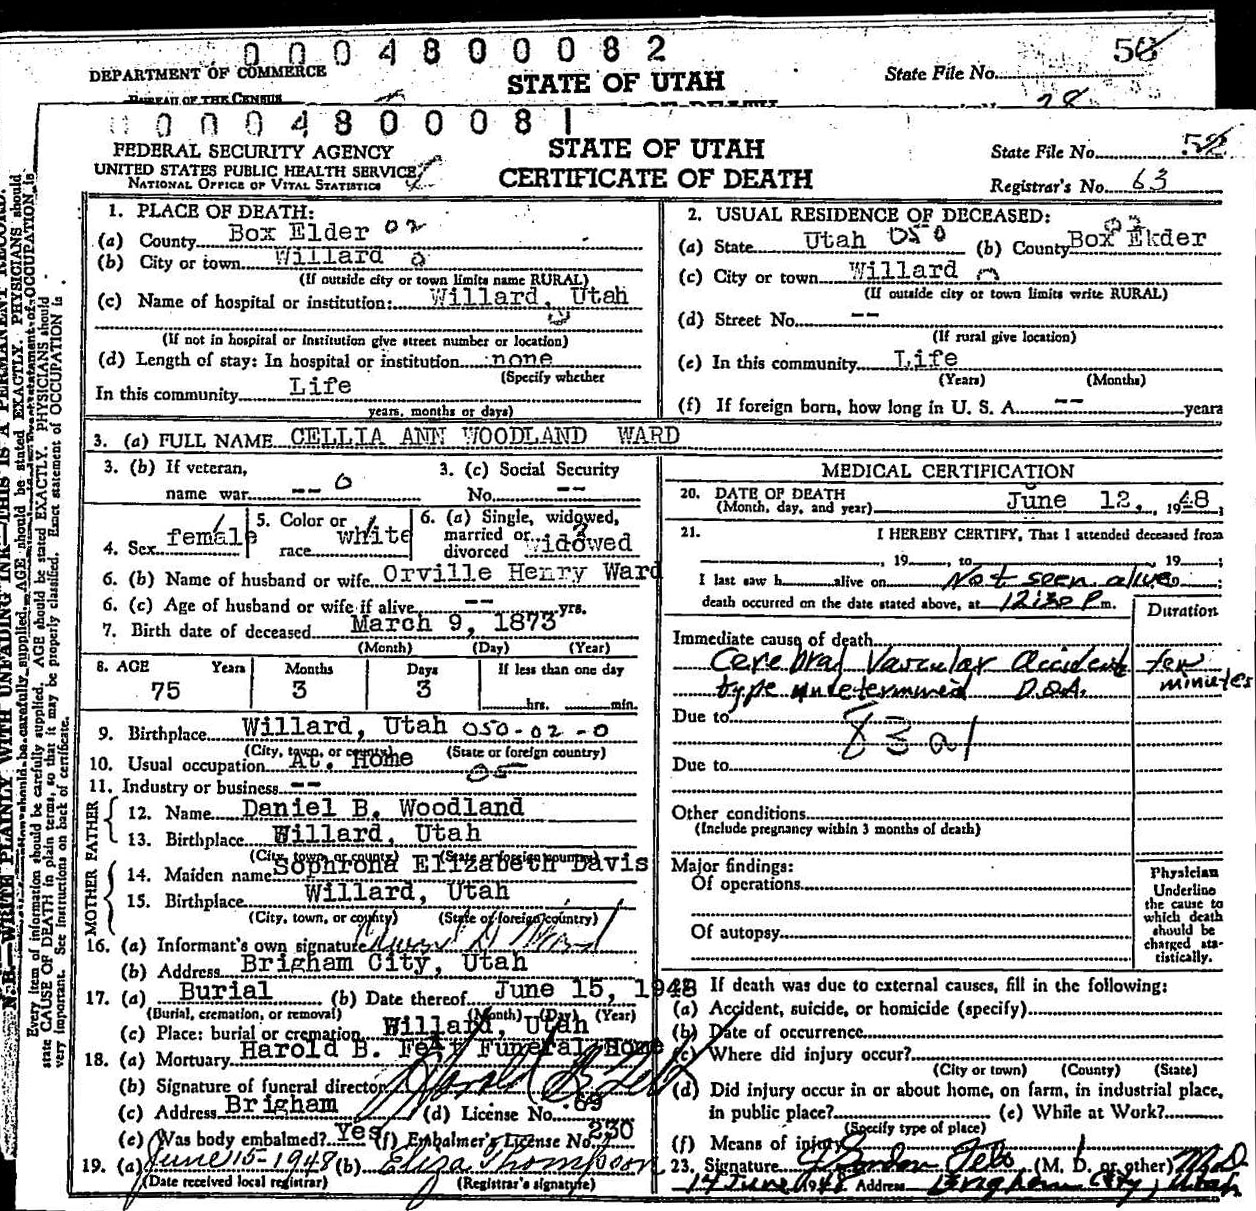 0 0 0 4 8 0 0 0 8 2
DEPARTMENT OF COMMERCE
BUREAU OF THE CENSUS
STATE OF UTAH
State File No.
28
0 0 0 4 8 0 0 0 8 1
FEDERAL SECURITY AGENCY
UNITED STATES PUBLIC HEALTH SERVICE
NATIONAL OFFICE OF VITAL STATISTICS
STATE OF UTAH
CERTIFICATE OF DEATH
State File No.
Registrar's No. 63
N.B.—WRITE PLAINLY WITH UNFADING INK—THIS IS A PERMANENT RECORD.
Every item of information should be carefully supplied. AGE should be stated EXACTLY. PHYSICIANS should
state CAUSE OF DEATH in plain terms, so that it may be properly classified. Exact statement of OCCUPATION is
very important. See instructions on back of certificate.
1. PLACE OF DEATH:
(a) County Box Elder 02
(b) City or town Willard
(If outside city or town limits name RURAL)
(c) Name of hospital or institution: Willard, Utah
(If not in hospital or institution give street number or location)
(d) Length of stay: In hospital or institution none
(Specify whether
In this community Life
years, months or days)
2. USUAL RESIDENCE OF DECEASED:
(a) State Utah 050 (b) County Box Ekder
(c) City or town Willard
(If outside city or town limits write RURAL)
(d) Street No. --
(If rural give location)
(e) In this community Life
(Years) (Months)
(f) If foreign born, how long in U. S. A. -- years
3. (a) FULL NAME CELLIA ANN WOODLAND WARD
3. (b) If veteran,
name war -- 0
3. (c) Social Security
No. --
4. Sex female
5. Color or
race white
6. (a) Single, widowed,
married or
divorced widowed
6. (b) Name of husband or wife Orville Henry Ward
6. (c) Age of husband or wife if alive -- yrs.
7. Birth date of deceased March 9, 1873
(Month) (Day) (Year)
8. AGE Years Months Days If less than one day
75 3 3 hrs. min.
9. Birthplace Willard, Utah 050-02-0
(City, town, or county) (State or foreign country)
10. Usual occupation At. Home
11. Industry or business --
FATHER
12. Name Daniel B. Woodland
13. Birthplace Willard, Utah
(City, town, or county) (State or foreign country)
MOTHER
14. Maiden name Sophrona Elizabeth Davis
15. Birthplace Willard, Utah
(City, town, or county) (State or foreign country)
16. (a) Informant's own signature
(b) Address Brigham City, Utah
17. (a) Burial (b) Date thereof June 15, 1948
(Burial, cremation, or removal) (Month) (Day) (Year)
(c) Place: burial or cremation Willard, Utah
18. (a) Mortuary Harold B. Felt Funeral Home
(b) Signature of funeral director Harold B Felt
(c) Address Brigham (d) License No. 69
(e) Was body embalmed? Yes (f) Embalmer's License No. 230
19. (a) June 15-1948 (b) Eliza Thompson
(Date received local registrar) (Registrar's signature)
MEDICAL CERTIFICATION
20. DATE OF DEATH
(Month, day, and year) June 12, 1948;
21. I HEREBY CERTIFY, That I attended deceased from
, 19 , to , 19 ;
I last saw h alive on Not seen alive ;
death occurred on the date stated above, at 12:30 P m.
Duration
Immediate cause of death
Cerebral Vascular accident few
type undetermined D.O.A. minutes
Due to 83a1
Due to
Other conditions
(Include pregnancy within 3 months of death)
Major findings:
Of operations
Of autopsy
Physician
Underline
the cause to
which death
should be
charged sta-
tistically.
22. If death was due to external causes, fill in the following:
(a) Accident, suicide, or homicide (specify)
(b) Date of occurrence
(c) Where did injury occur?
(City or town) (County) (State)
(d) Did injury occur in or about home, on farm, in industrial place,
in public place? (e) While at Work?
(Specify type of place)
(f) Means of injury
23. Signature J Gordon Felt (M. D. or other) M.D.
14 June 1948 Address Brigham City, Utah